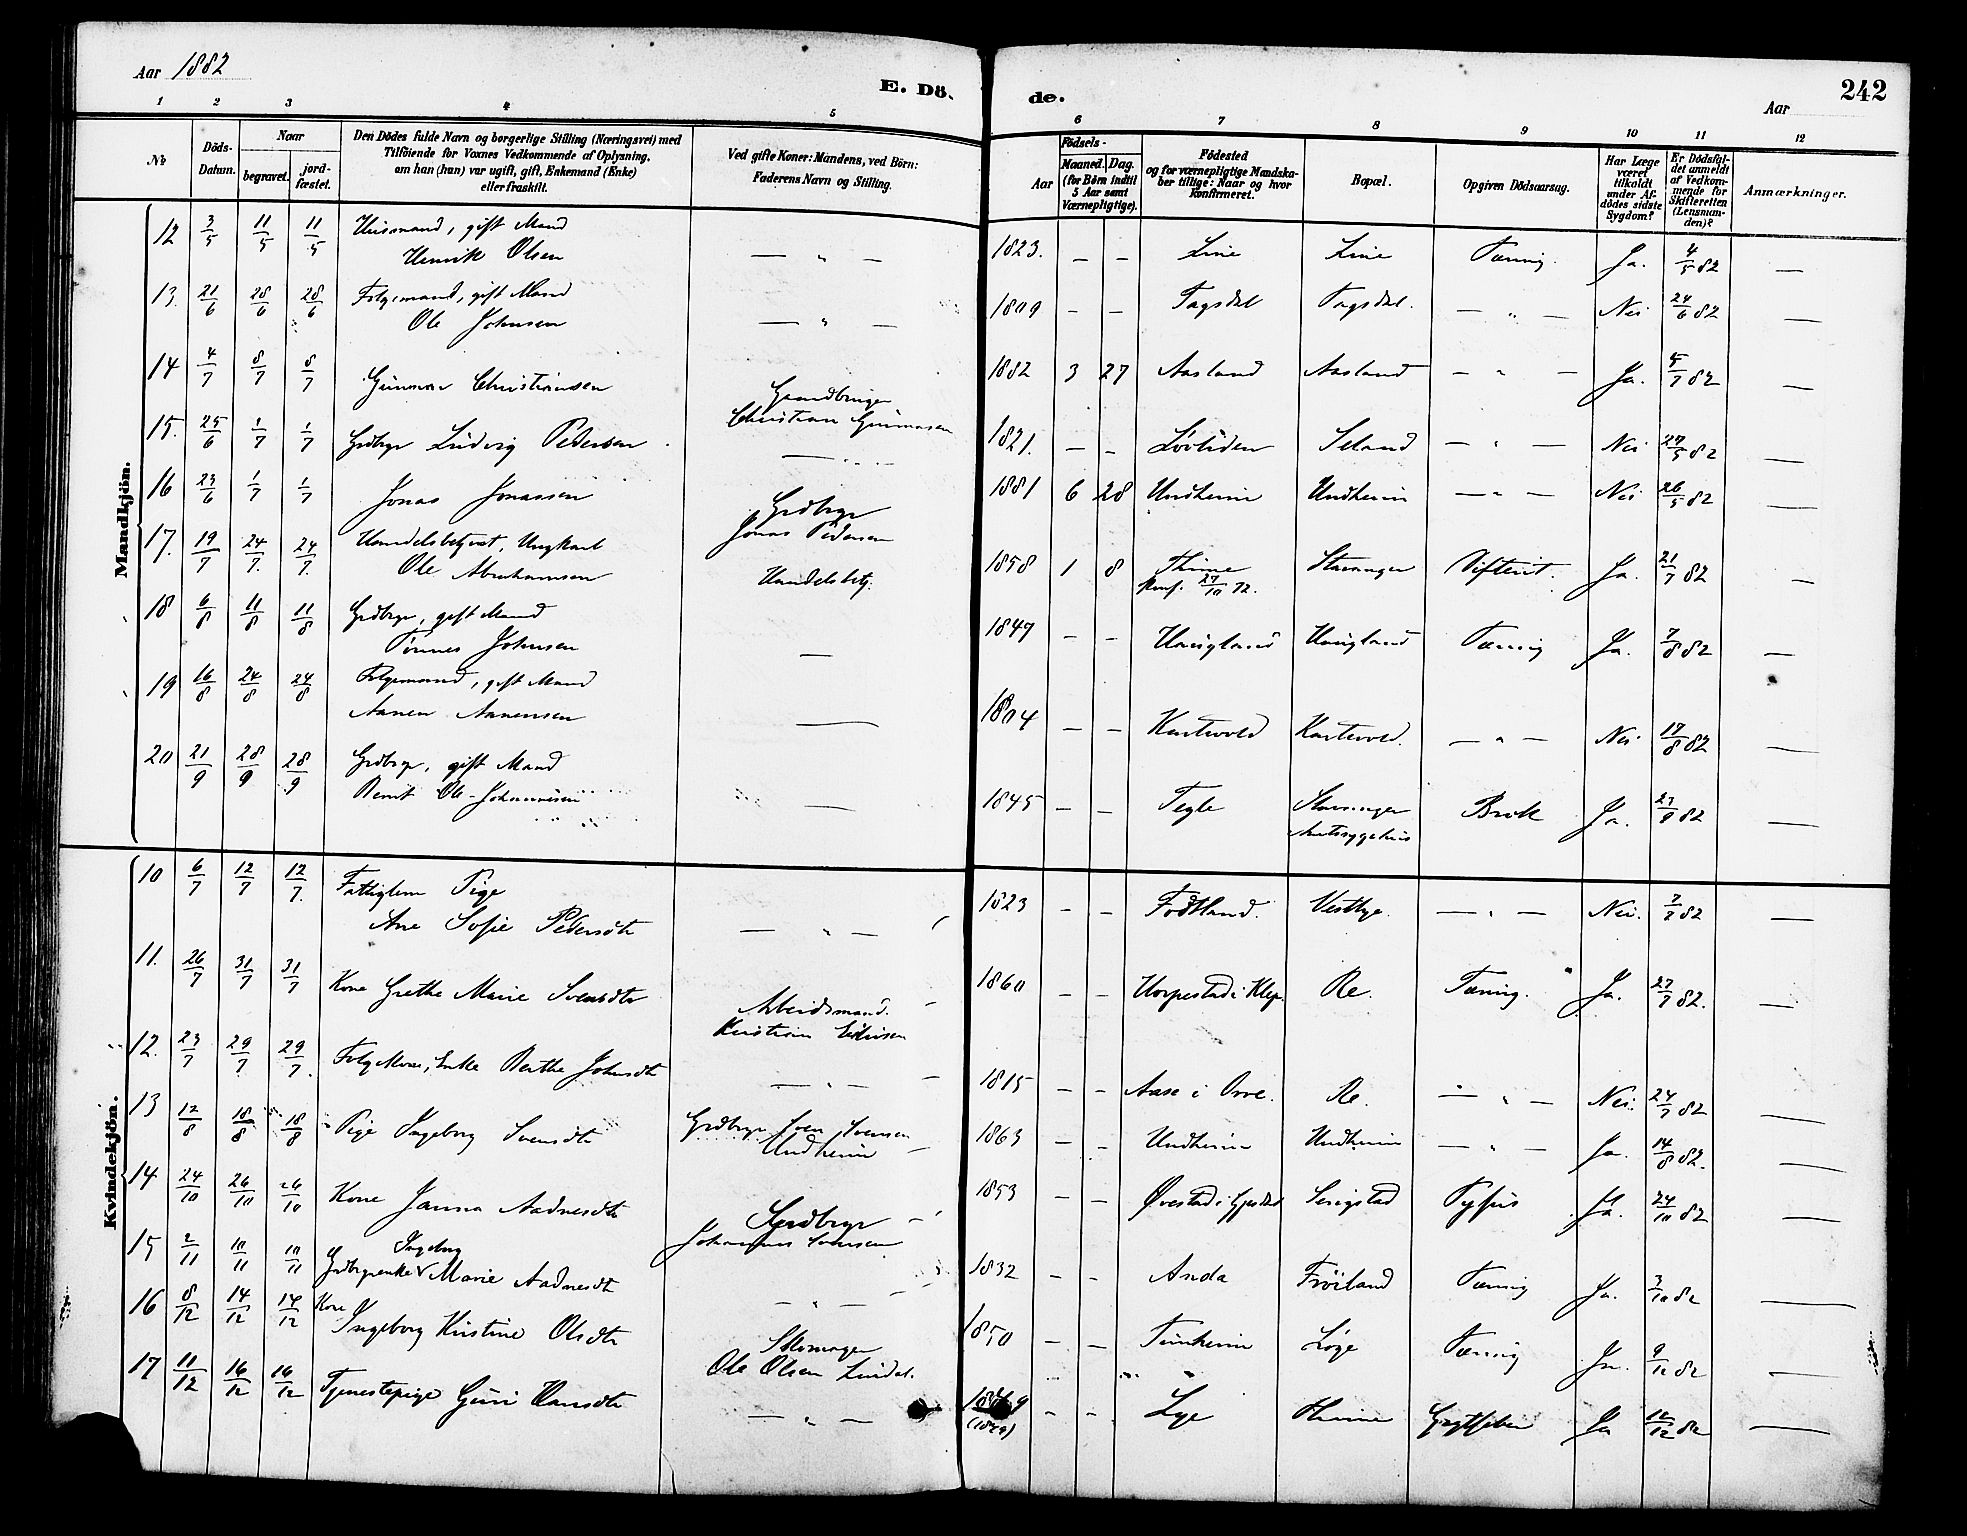 Aar 1882
E. Dö-
de.
Aar
242
1 2 3 4 5 6 7 8 9 10 11 12
No
Döds-Datum.
Naar
begravet.
jord-fæstet.
Den Dödes fulde Navn og borgerlige Stilling (Næringsvei) med
Tilföiende for Voxnes Vedkommende af Oplysning,
om han (hun) var ugift, gift, Enkemand (Enke)
eller fraskilt.
Ved gifte Koner: Mandens, ved Börn:
Faderens Navn og Stilling.
Födsels-
Aar
Maaned. Dag.
(for Börn indtil
5 Aar samt
Værnepligtige).
Födested
og for værnepligtige Mandska-
ber tillige: Naar og hvor
Konfirmeret.
Bopæl.
Opgiven Dödsaarsag.
Har Læge
været
tilkaldt
under Af-
dödes sidste
Sygdom?
Er Dödsfal-
det anmeldt
af Vedkom-
mende for
Skifteretten
(Lensman-
den)?
Anmærkninger.
Mandkjön.
12 3/5 11/5 11/5 Huusmand, gift Mand
Henrik Olsen — " — 1823. — — Line Line Tæring. Ja. 4/5 82 —
13. 21/6 28/6 28/6 Folgemand, gift Mand
Ole Johnsen — " — 1809 — — Fagsdal Fagsdal. — " — Nei 24/6 82 —
14 4/7 8/7 8/7 Gunnar Christiansen Gaardbruger
Christian Gunnarsen 1882 3 27 Aasland Aasland — " — Ja. 5/7 82 —
15. 25/6 1/7 1/7 Grdbgr Ludvig Pedersen — 1821. — — Seland — " — Nei 27/5 82 —
16 23/6 1/7 1/7 Jonas Jonassen Grdbgr
Jonas Pedersen 1881 6 28 Undheim Undheim — " — Nei 26/5 82 —
17. 19/7 24/7. 24/7. Handelsbetjent, Ungkarl
Ole Abrahamsen Handelsbetj. 1858 1 8 Thime
Konf. 27/10 72. Stavanger Difterit. Ja. 21/7 82 —
18 6/8 11/8 11/8 Grdbgr, gift Mand
Tønnes Johnsen — 1847 — — Haugland Haugland Tæring Ja. 7/8 82 —
19 16/8 24/8 24/8 Folgemand, gift Mand
Aanen Aanensen — 1804 — — Kartevold Kartevold. — " — Nei 17/8 82 —
20 21/9 28/9 28/9 Grdbgr, gift Mand
Bernt Ole Johannesen — 1845 — — Tegle Stavanger
Amtssygehus Brok Ja. 23/9 82 —
Kvindekjön.
10 6/7 12/7 12/7. Fattiglem Pige
Ane Sofie Pedersdtr — " — 1823 — — Fodtland. Vestlye. — " — Nei. 7/7 82 —
11. 26/7 31/7 31/7 Kone Grethe Marie Svensdtr Arbeidsmand.
Kristian 1860 — — Horpestad i Klep. Re. Tæring. Ja. 27/7 82. —
12. 23/7 29/7 29/7. Folgekone, Enke Berthe Johnsdtr — " — 1815 — — Aase i Orre. Re. — " — Nei. 24/7 82 —
13 12/8 18/8 18/8 Pige Ingeborg Svensdtr Grdbgr Sven Svensen
Undheim 1863 — — Undheim Undheim — " — Ja. 14/8 82. —
14 24/10 26/10 26/10 Kone Janna Aadnesdtr Grdbgr
Johannes Svensen 1853 — — Øvestad i Gjesdal Serigstad Tyfus Ja. 24/10 82 —
15 2/11 10/11 10/11 Ingeborg
Grdbgrenke Marie Aadnesdtr — " — 1832 — — Anda Frøiland Tæring Ja. 3/10 82 —
16 8/12 14/12 14/12 Kone
Ingeborg Kristine Olsdtr Skomager
Ole Olsen Lindal. 1850 — — Tunheim Løge Tæring Ja. 9/12 82 —
17 11/12 16/12 16/12 Tjenestepige Guri Hansdtr — " — (1849) — — Lye Thime Ja 12/12 82 —